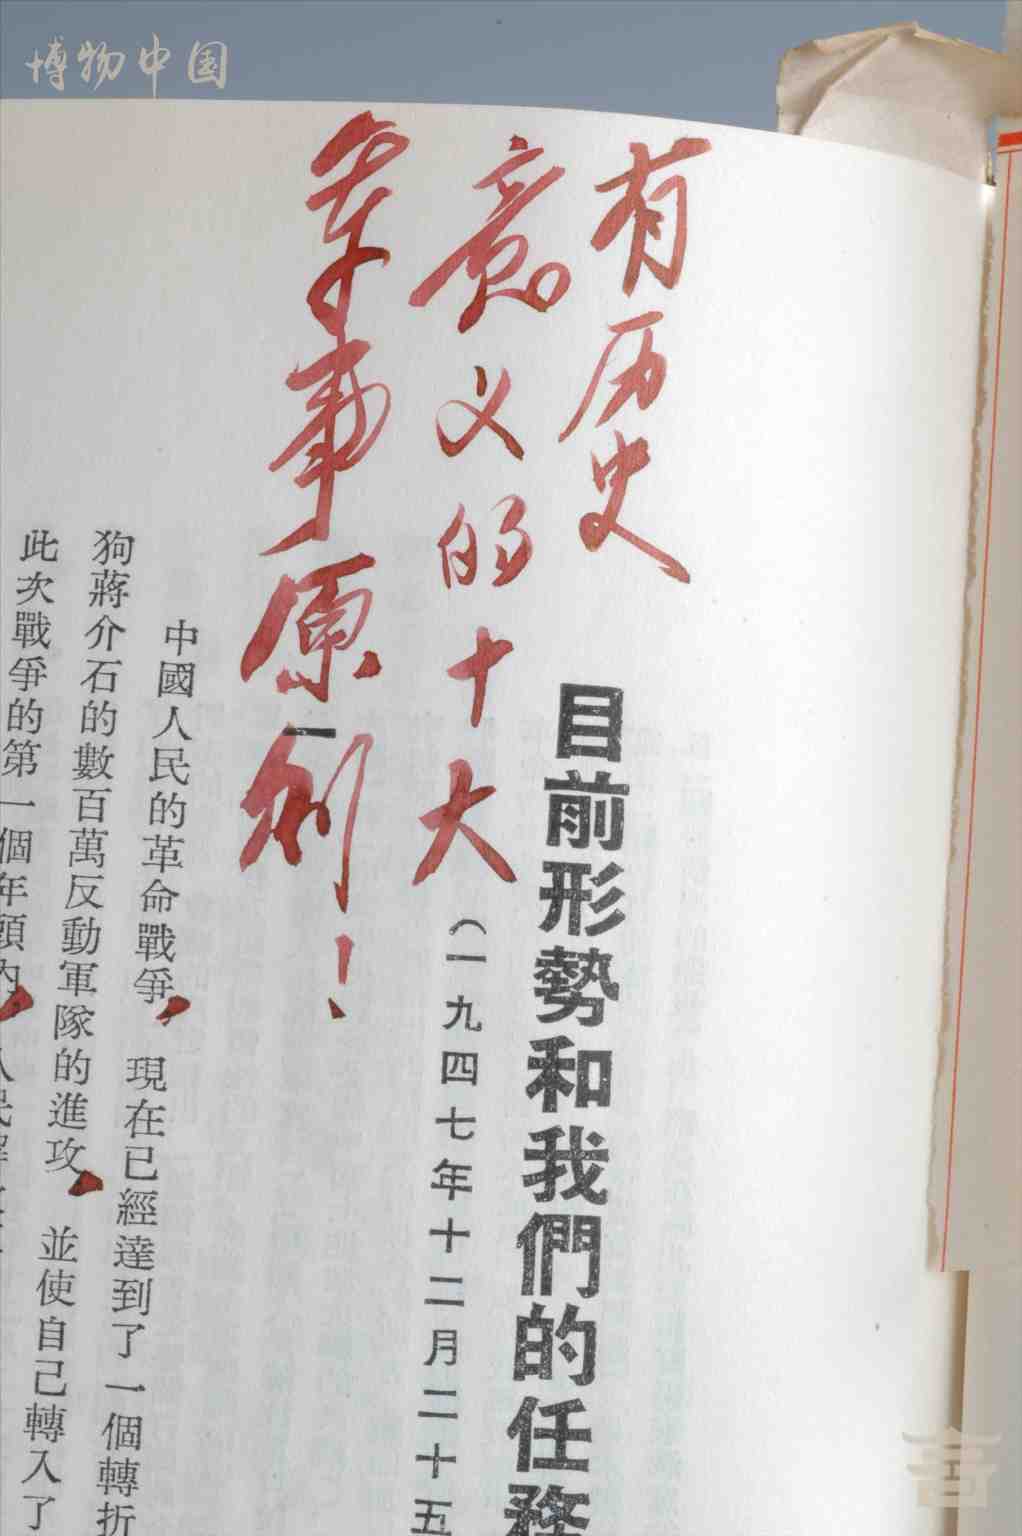 博物中国
有历史
意义的十大
军事原则！
目前形勢和我們的任務
（一九四七年十二月二十五
一
中國人民的革命戰爭，現在已經達到了一個轉折
狗蔣介石的數百萬反動軍隊的進攻，並使自己轉入了
此次戰爭的第一個年頭內，人民解